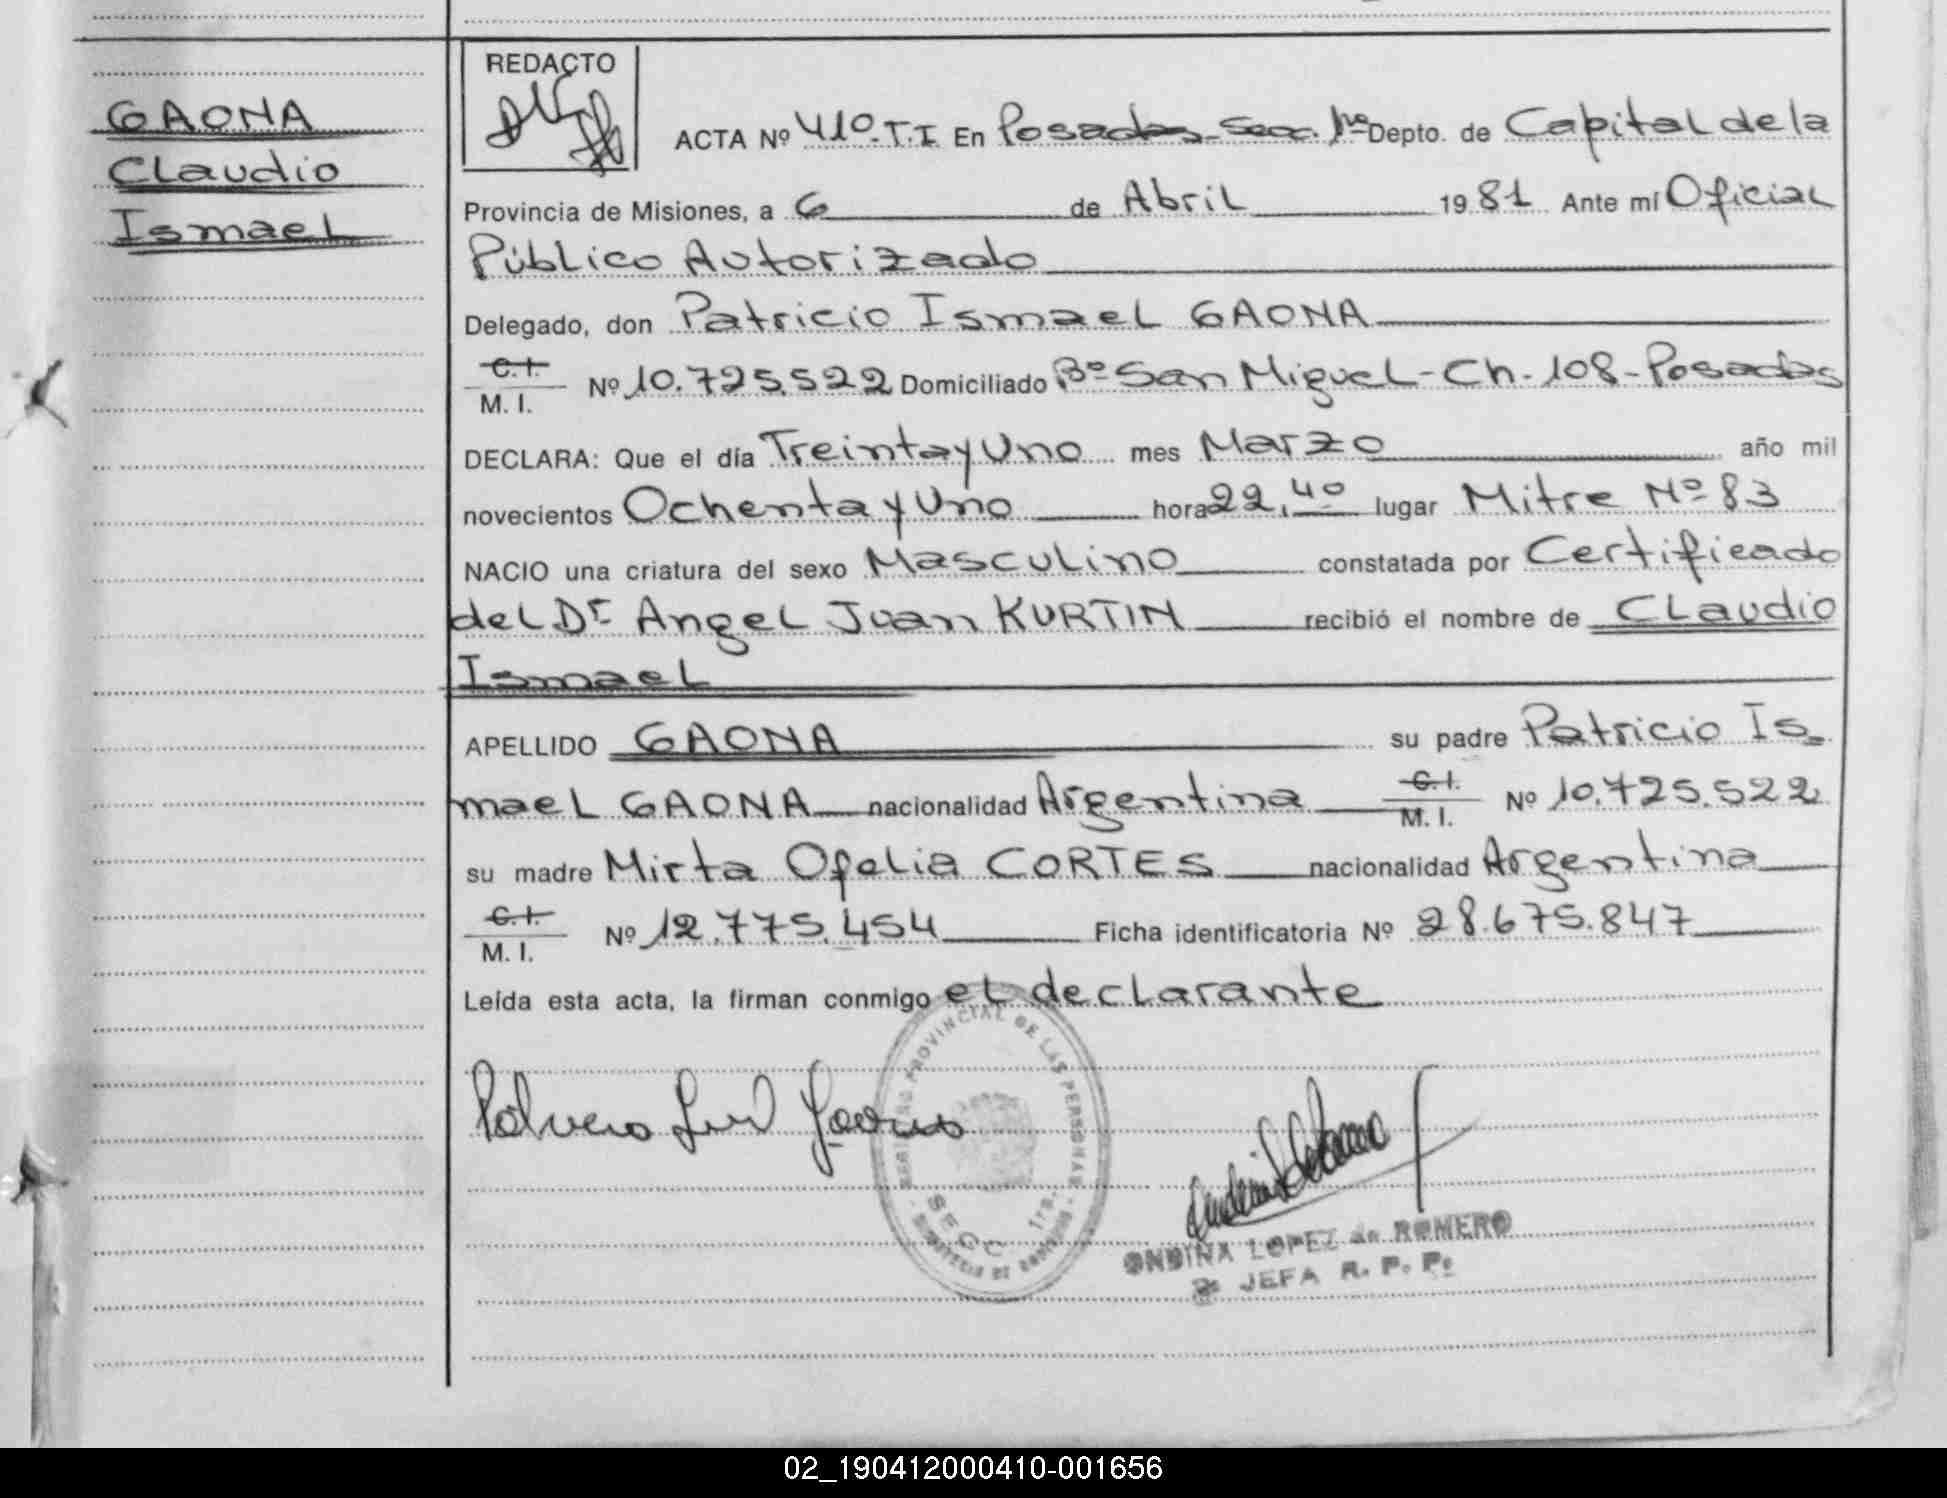 GAONA
Claudio
Ismael
REDACTO
ACTA Nº 410.T.I En Posadas-Secc. 1ra Depto. de Capital de la
Provincia de Misiones, a 6 de Abril 1981 Ante mí Oficial
Público Autorizado
Delegado, don Patricio Ismael GAONA
C.I.
M. I. Nº 10.725.522 Domiciliado Bº San Miguel-Ch-108-Posadas
DECLARA: Que el día Treinta y Uno mes Marzo año mil
novecientos Ochenta y Uno hora 22,40 lugar Mitre Nº 83
NACIO una criatura del sexo Masculino constatada por Certificado
del Dr Angel Juan KURTIN recibió el nombre de Claudio
Ismael
APELLIDO GAONA su padre Patricio Is_
mael GAONA nacionalidad Argentina C.I. M. I. Nº 10.725.522
su madre Mirta Ofelia CORTES nacionalidad Argentina
C.I.
M. I. Nº 12.775.454 Ficha identificatoria Nº 28.675.847
Leída esta acta, la firman conmigo el declarante
REGISTRO PROVINCIAL DE LAS PERSONAS
SECC 1ra.
ONDINA LOPEZ de ROMERO
JEFA R. P. P.
02_190412000410-001656